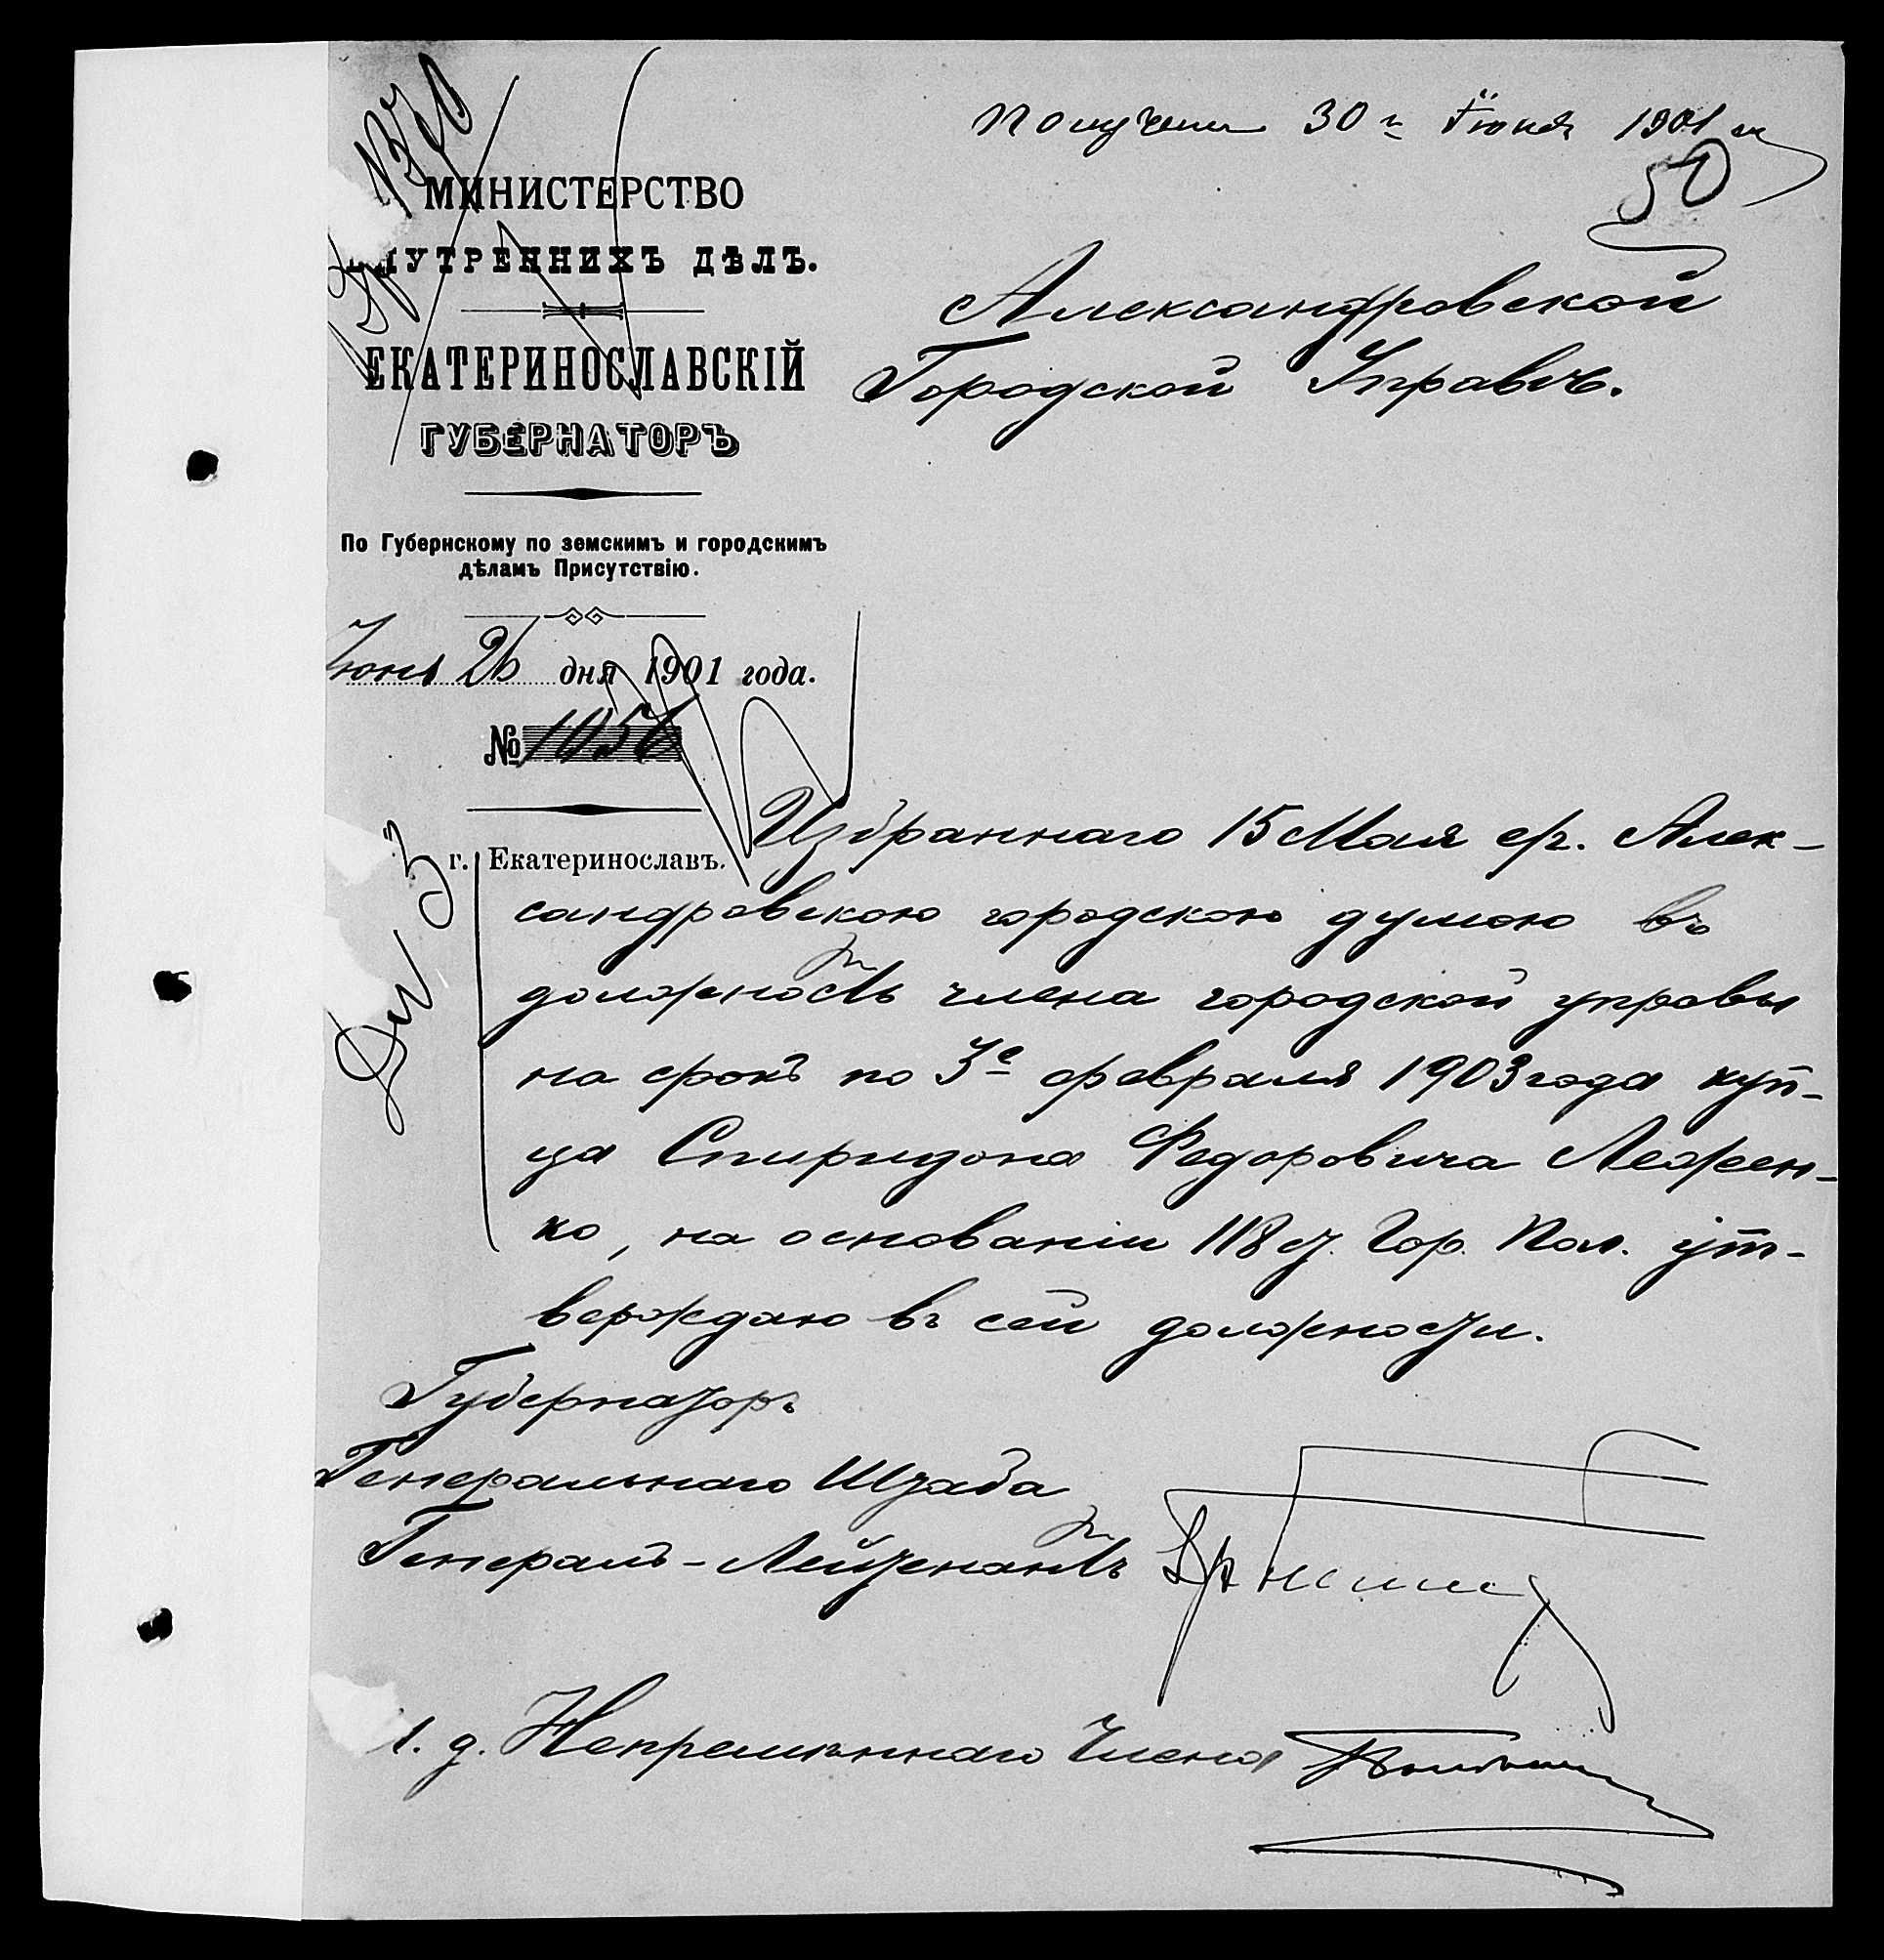 Получена 30 г Іюня 1901 г
50
МИНИСТЕРСТВО
УТРЕННИХЪ ДѢЛЪ.
ЕКАТЕРИНОСЛАВСКІЙ
ГУБЕРНАТОРЪ
По Губернскому по земскимъ и городскимъ
дѣламъ Присутствію.
Іюня 26 дня 1901 года.
№ 1056
г. Екатеринославъ.
Александровской
Городской Управѣ.
Избраннаго 15 Мая с/г. Алек-
сандровскою городскою думою въ
должность члена городской управы
на срокъ по 3е февраля 1903 года куп-
ца Спиридона Федоровича Леженко-
ко, на основаніи 118 ст. Гор. Пол. ут-
верждаю въ сей должности.
Губернаторъ
Генеральнаго Штаба
Генералъ-Лейтенантъ
д. Непремѣннаго Члена